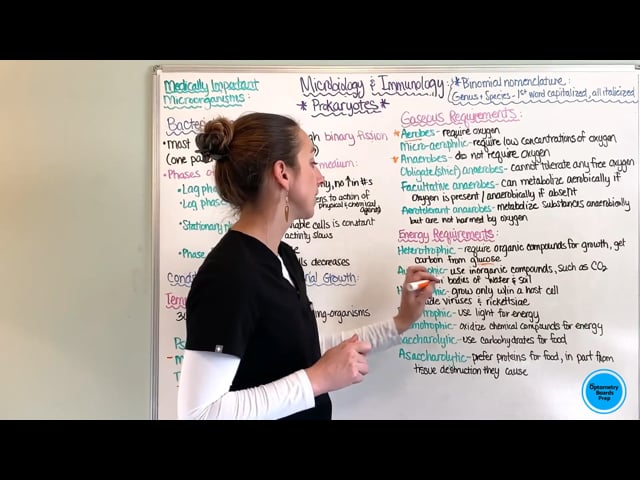 Medically Important
Microorganisms:
Microbiology & Immunology:
* Prokaryotes *
*Binomial nomenclature:
Genus + Species - 1st word capitalized, all italicized
Bacter
gh binary fission
• most
(one pa
medium:
• Phases o
• Lag phas
ny, no ↑ in #s
• Log phas
to action of
physical & chemical
agents)
• Stationary
nable calls is constant
activity slows
• Phase
cells decreases
Condit
rial Growth:
ing-organisms
Gaseous Requirements:
Aerobes - require oxygen
Micro-aerophilic - require low concentrations of oxygen
Anaerobes - do not require oxygen
Obligate (strict) anaerobes - cannot tolerate any free oxygen
Facultative anaerobes - can metabolize aerobically if
oxygen is present / anaerobically if absent
Aerotolerant anaerobes - metabolize substances anaerobically
but are not harmed by oxygen
Energy Requirements:
Heterotrophic - require organic compounds for growth, get
carbon from glucose
phic - use inorganic compounds, such as CO2
in bodies of water & soil
phic - grow only w/in a host cell
viruses & rickettsiae
trophic - use light for energy
otrophic - oxidize chemical compounds for energy
accharolytic - use carbohydrates for food
Asaccharolytic - prefer proteins for food, in part from
tissue destruction they cause
Optometry
Boards
Prep